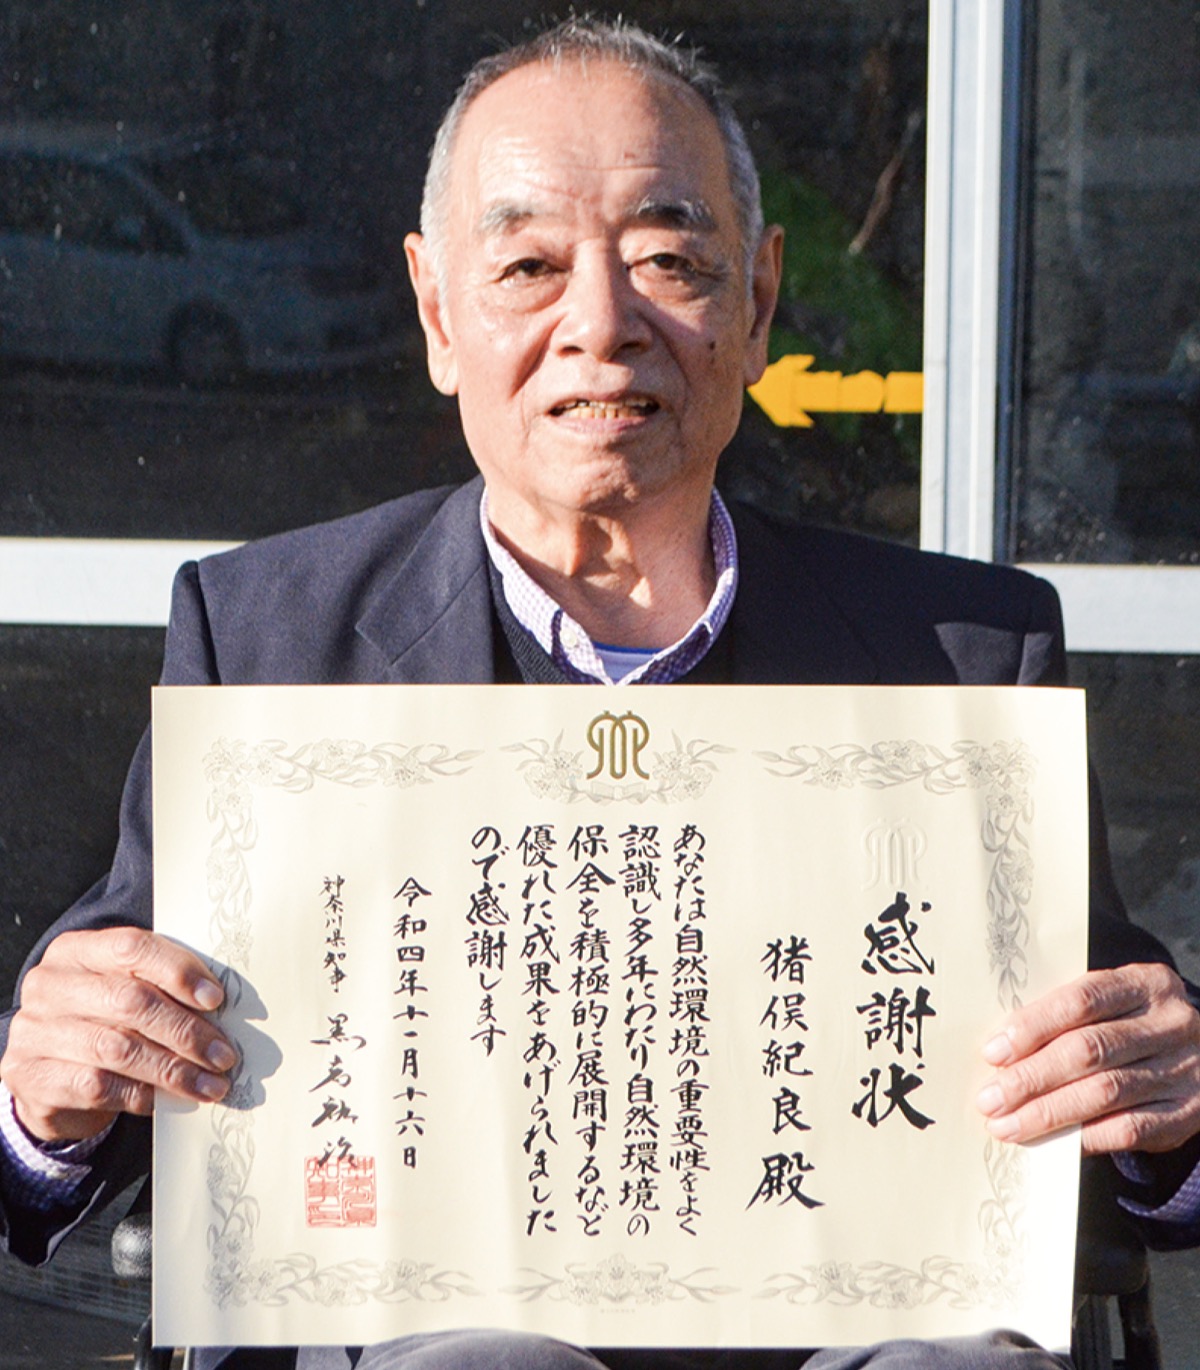 感謝状
猪俣紀良殿
あなたは自然環境の重要性をよく
認識し多年にわたり自然環境の
保全を積極的に展開するなど
優れた成果をあげられました
ので感謝します
令和四年十一月十六日
神奈川県知事 黒岩祐治
神奈川県知事印